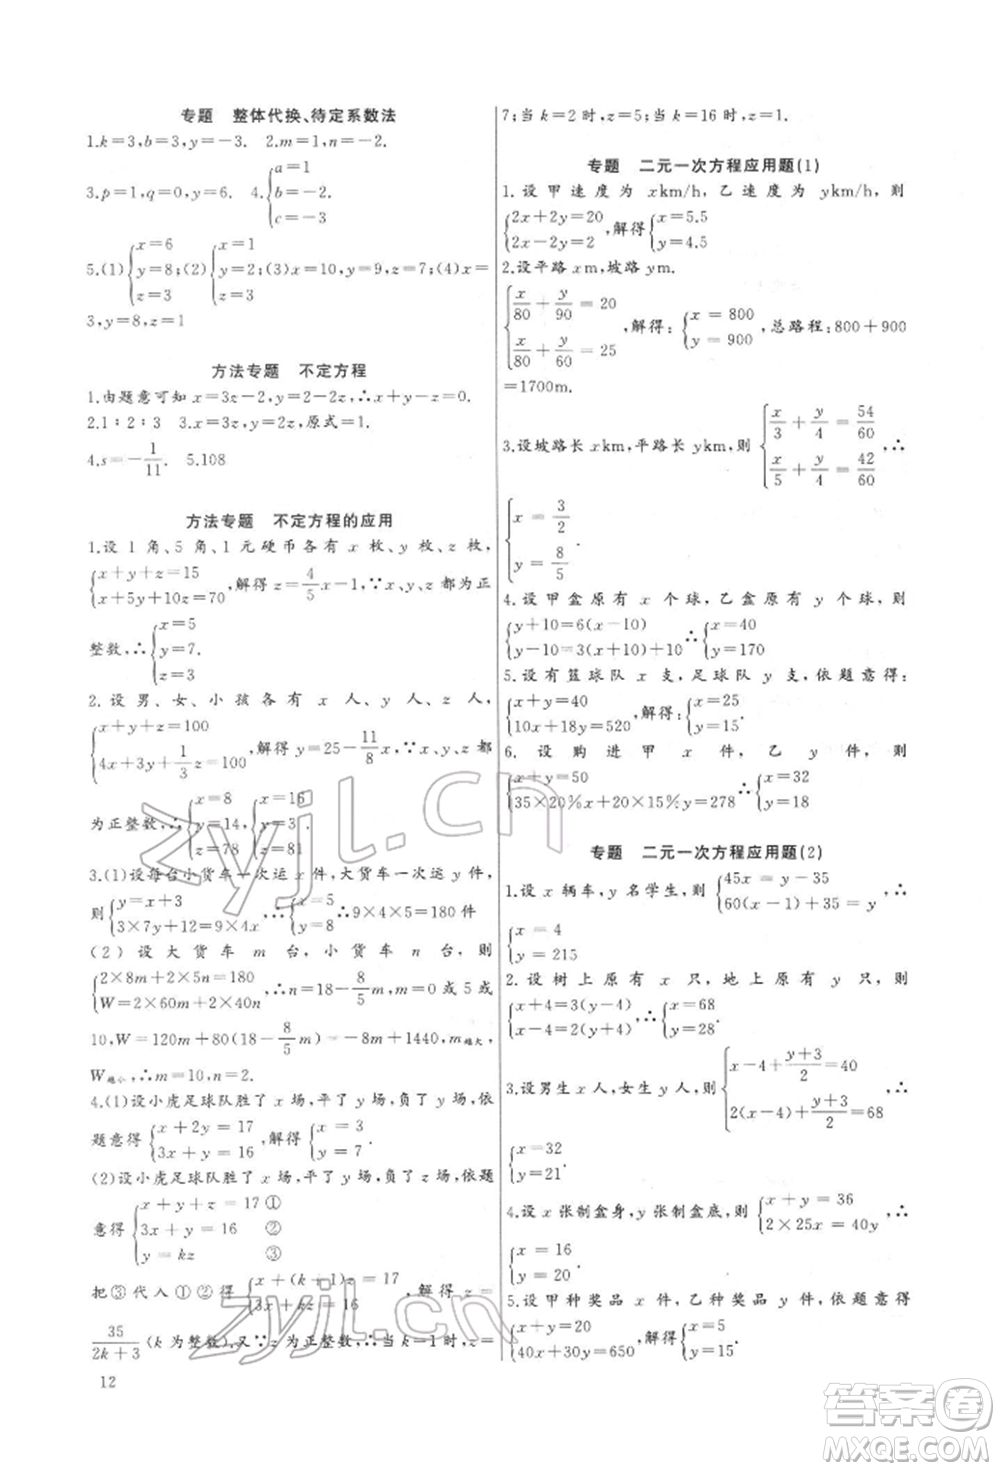 专题 整体代换、待定系数法
1.k=3,b=3,y=-3. 2.m=1,n=-2.
3.p=1,q=0,y=6. 4.{a=1 b=-2 c=-3
5.(1){x=6 y=8 z=3;(2){x=3 y=2 z=1;(3)x=10,y=9,z=7;(4)x=
3,y=8,z=1
方法专题 不定方程
1.由题意可知 x=3z-2,y=2-2z,∴x+y-z=0.
2.1:2:3 3.x=3z,y=2z,原式=1.
4.s=-1/11. 5.108
方法专题 不定方程的应用
1.设1角、5角、1元硬币各有 x 枚、y 枚、z 枚,
{x+y+z=15 x+5y+10z=70,解得 z=4/5x-1,∵x、y、z 都为正
整数,∴{x=5 y=7. z=3
2.设男、女、小孩各有 x 人、y 人、z 人,
{x+y+z=100 4x+3y+1/3z=100,解得 y=25-11/8x,∵x、y、z 都
为正整数,∴{x=8 y=14, z=78 {x=16 y=3. z=81
3.(1)设每台小货车一次运 x 件,大货车一次运 y 件,
则{y=x+3 3×7y+12=9×4x∴{x=5 y=8∴9×4×5=180 件
(2)设大货车 m 台,小货车 n 台,则
{2×8m+2×5n=180 W=2×60m+2×40n,∴n=18-8/5m,∴m=0 或5或
10,W=120m+80(18-8/5m)=-8m+1440,m越大,
W越小,∴m=10,n=2.
4.(1)设小虎足球队胜了 x 场,平了 y 场,依
题意得{x+2y=17 3x+y=16,解得{x=3 y=7.
(2)设小虎足球队胜了 x 场,平了 y 场,负了 z 场,依题
意得{x+y+z=17① 3x+y=16 ② y=kz ③
把③代入①②得{x+(k+1)z=17 3x+kz=16,解得 z=
35/2k+3(k 为整数),又∵z 为正整数,∴当 k=1 时,z=
12
7;当 k=2 时,z=5;当 k=16 时,z=1.
专题 二元一次方程应用题(1)
1.设甲速度为 xkm/h,乙速度为 ykm/h,则
{2x+2y=20 2x-2y=2,解得{x=5.5 y=4.5
2.设平路 xm,坡路 ym.
{x/80+y/90=20 x/80+y/60=25,解得:{x=800 y=900,总路程:800+900
=1700m.
3.设坡路长 xkm,平路长 ykm,则{x/3+y/4=54/60 x/5+y/4=42/60,∴
{x=3/2 y=8/5.
4.设甲盒原有 x 个球,乙盒原有 y 个球,则
{y+10=6(x-10) y-10=3(x+10)+10∴{x=40 y=170
5.设有篮球队 x 支,足球队 y 支,依题意得:
{x+y=40 10x+18y=520,解得:{x=25 y=15.
6.设购进甲 x 件,乙 y 件,则
{x+y=50 35×20%x+20×15%y=278∴{x=32 y=18
专题 二元一次方程应用题(2)
1.设 x 辆车,y 名学生,则{45x=y-35 60(x-1)+35=y,∴
{x=4 y=215
2.设树上原有 x 只,地上原有 y 只,则
{x+4=3(y-4) x-4=2(y+4),∴{x=68 y=28.
3.设男生 x 人,女生 y 人,则{x-4+y+3/2=40 2(x-4)+y+3/2=68,∴
{x=52 y=21.
4.设 x 张制盒身,y 张制盒底,则{x+y=36 2×25x=40y,∴
{x=16 y=20.
5.设甲种奖品 x 件,乙种奖品 y 件,依题意得
{x+y=20 40x+30y=650,解得{x=5 y=15.
zyjl.cn
zyjl.cn
答案圈
MXQE.COM